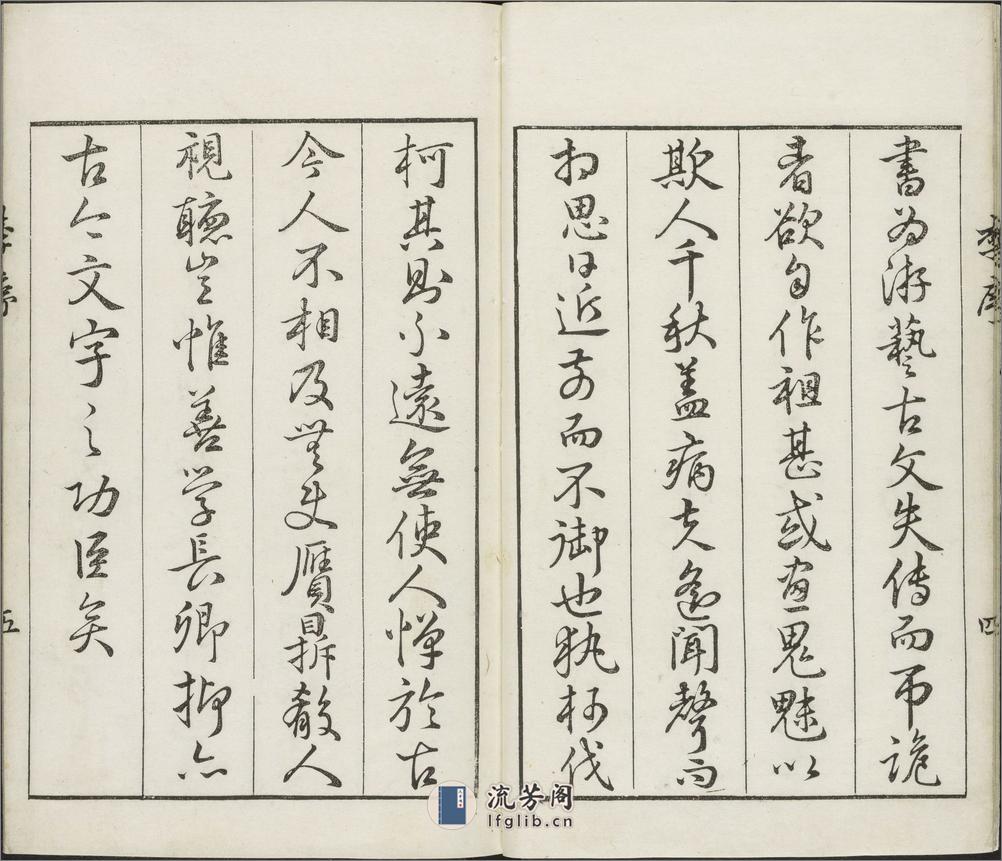 書為游藝古文失傳而弔詭
者欲自作祖甚或畫鬼魅以
欺人千秋蓋病夫遙聞聲而
相思日近前而不御也執柯伐
柯其則不遠無使人憚於古
今人不相及無使贋鼎散人
視聽豈惟善學長卿抑亦
古今文字之功臣矣
四
五
流芳阁
lfglib.cn